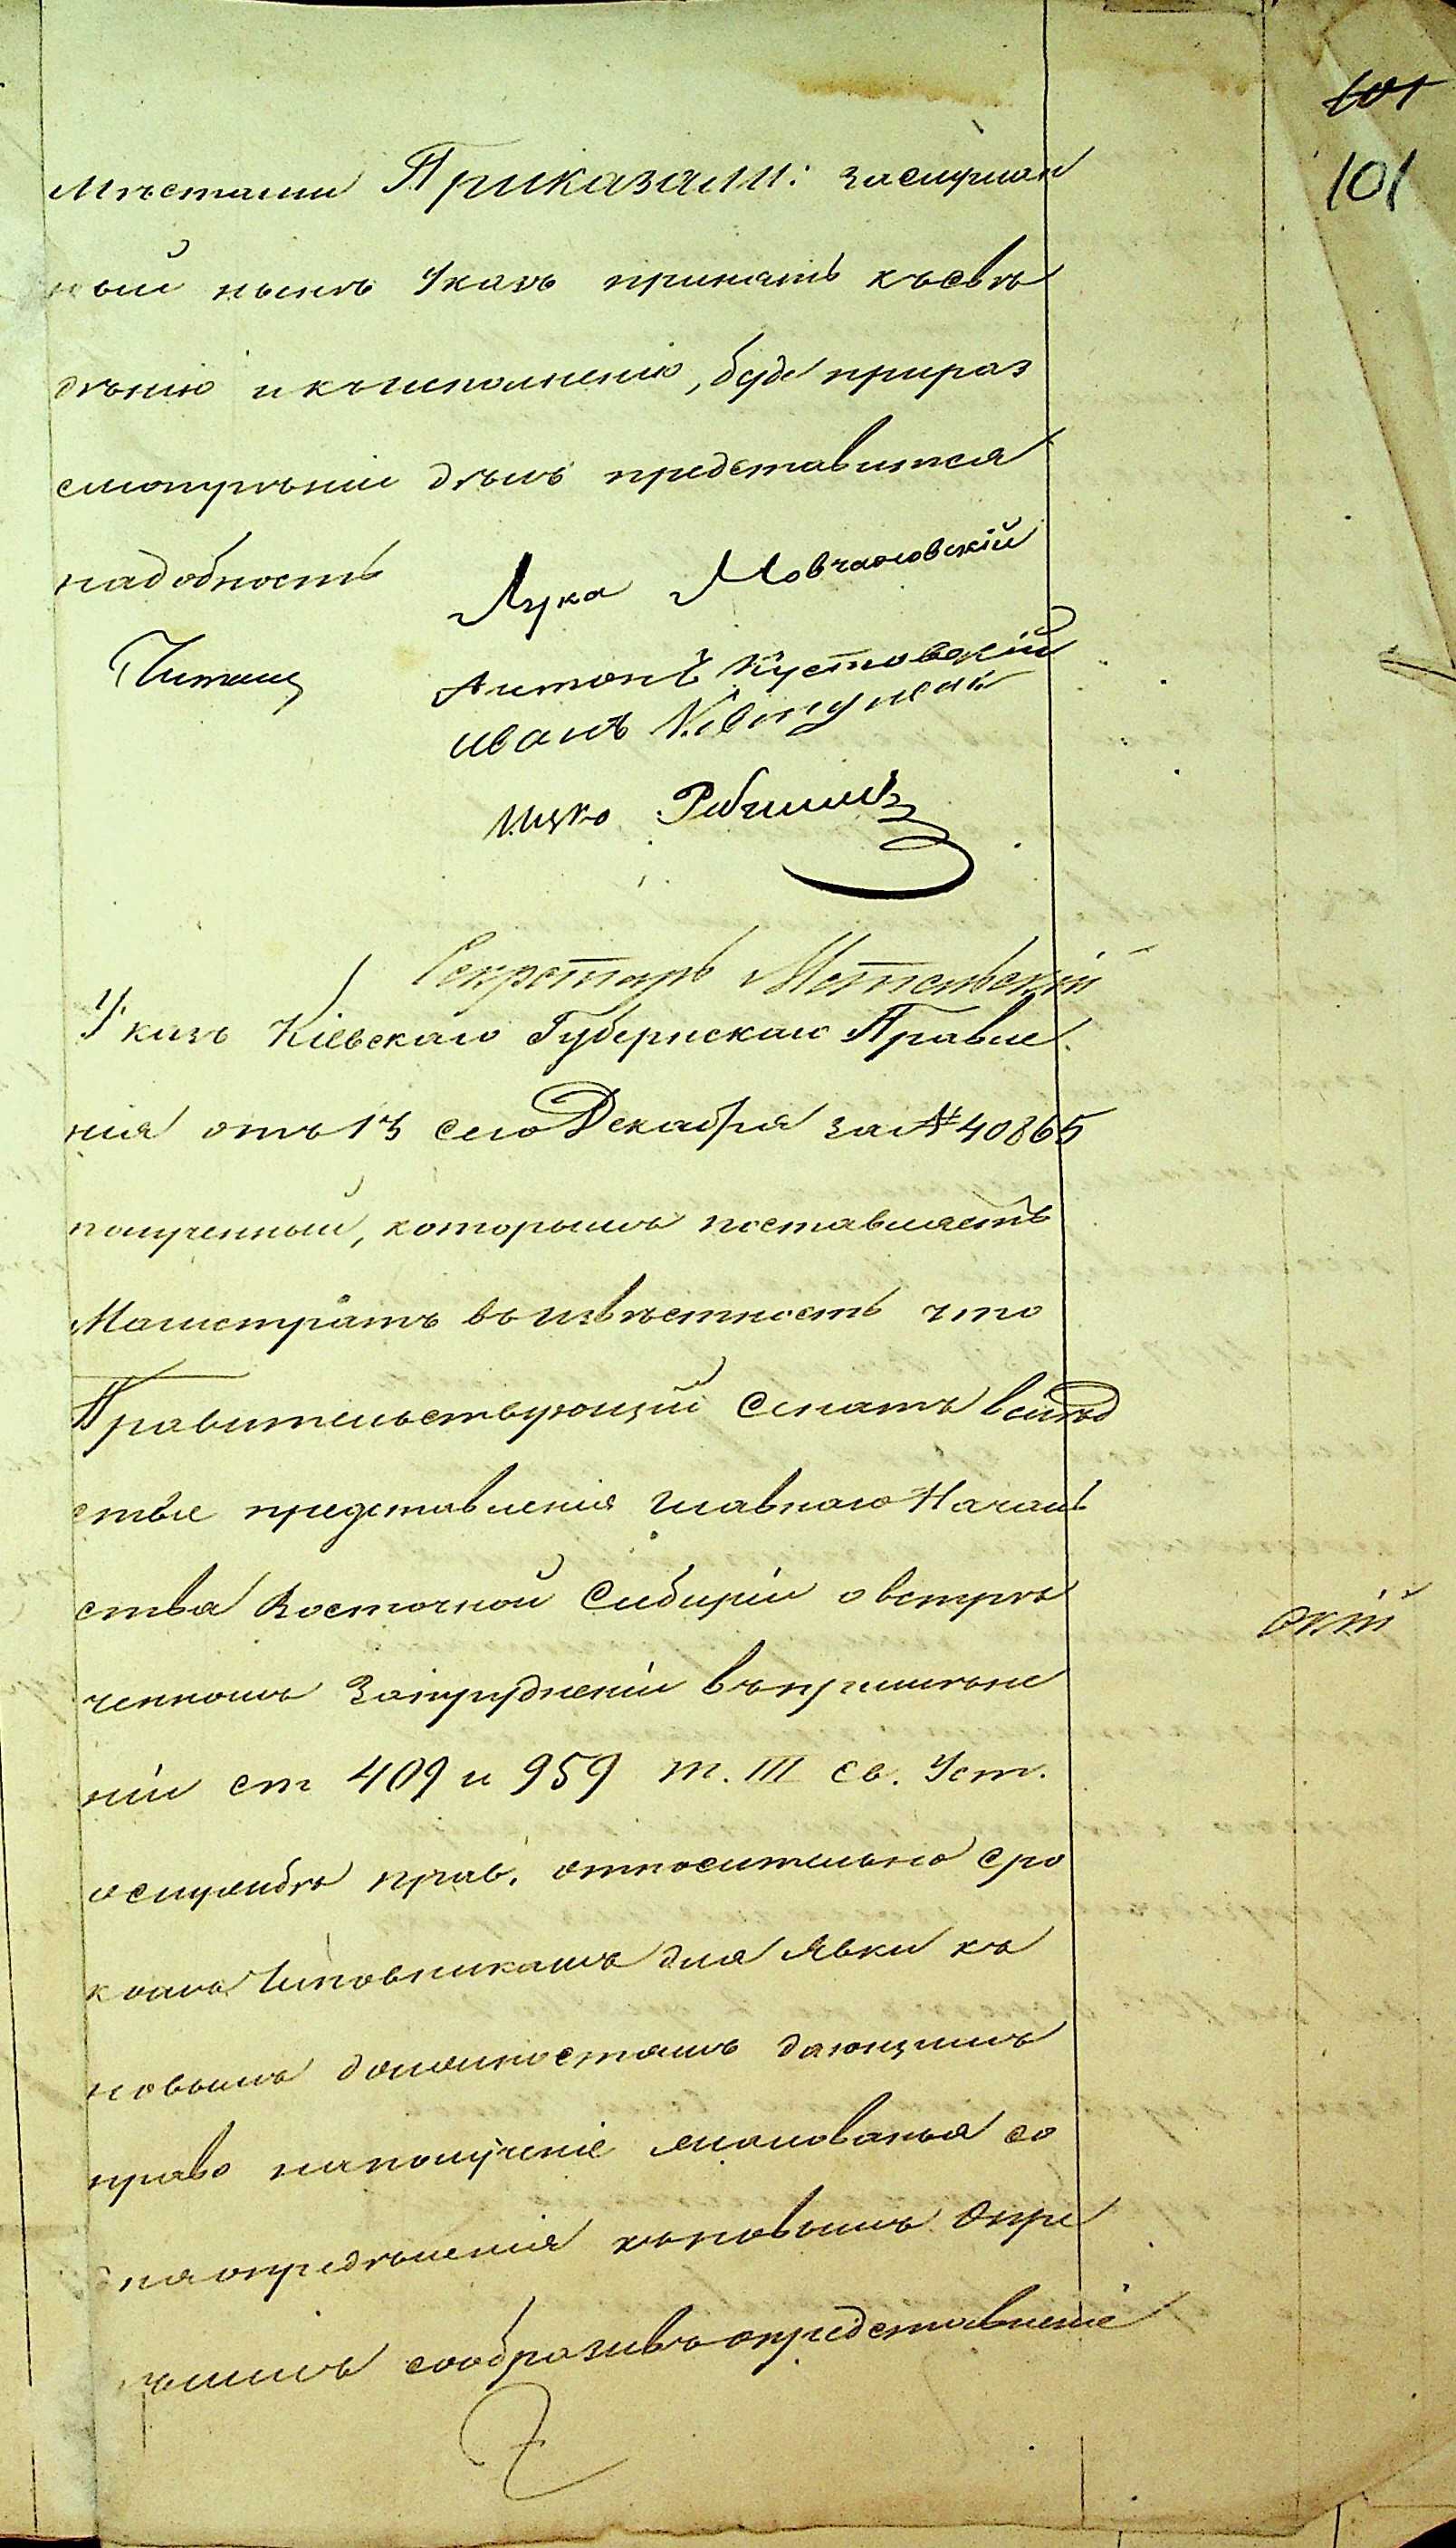 101
101
мѣстами Приказали: заслушан
ный нынѣ Указъ принять къ свѣ
дѣнію и къ исполненію, буде при раз
смотрѣніи дѣлъ представится
надобность
Лука Мовчановскій
Читалъ
Антонъ Кустовскій
Иванъ
Ицко
Секретарь
Указъ Кіевскаго Губернскаго Правле
нія отъ 13 сего Декабря за № 40865
полученный, которымъ поставляетъ
Магистратъ въ извѣстность что
Правительствующій Сенатъ вслѣд
ствіе представленія Главнаго Началь
ства Восточной Сибири о встрѣ
ченномъ затрудненіи въ примѣне
ніи ст 409 и 959 т. III Св. Уст.
о службѣ прав. относительно сро
ковъ Чиновникамъ для явки къ
новымъ должностямъ дающимъ
право на полученіе жалованья со
дня опредѣленія къ новымъ опре
сообразивъ представленіе
скій